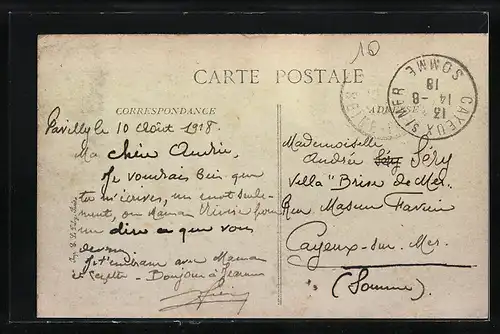 10
CARTE POSTALE
CORRESPONDANCE
ADRESSE
CAYEUX S/ MER
13
14-8
18
SOMME
Pavilly le 10 Août 1918.
Ma chère Andrée,
Je voudrais bien que
tu m'écrives, un mot seule-
ment, ou Maman Titine pour
me dire ce que vous
devenez
Je t'embrasse avec Maman
et Gazette - Bonjour à Jeanne
Mademoiselle
Andrée Séry
Villa "Brise de Mer
Rue Masson
Cayeux-sur-Mer.
(Somme)